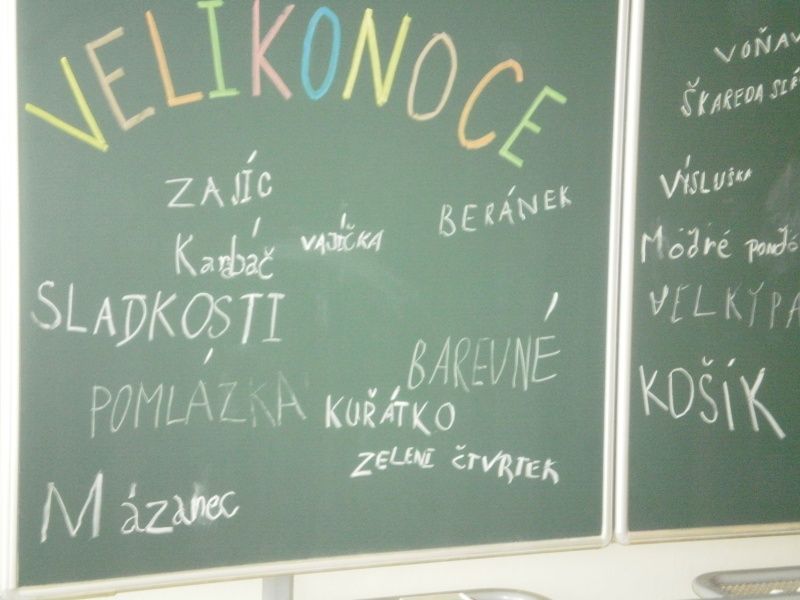 VELIKONOCE
ZAJÍC
BERÁNEK
VAJÍČKA
Karabáč
SLADKOSTI
BAREVNÉ
POMLÁZKA
KUŘÁTKO
ZELENÍ ČTVRTEK
Mázanec
VOŇAV
ŠKAREDA
VÝSLUŠKA
Módré
VELKÝ PA
KOŠÍK